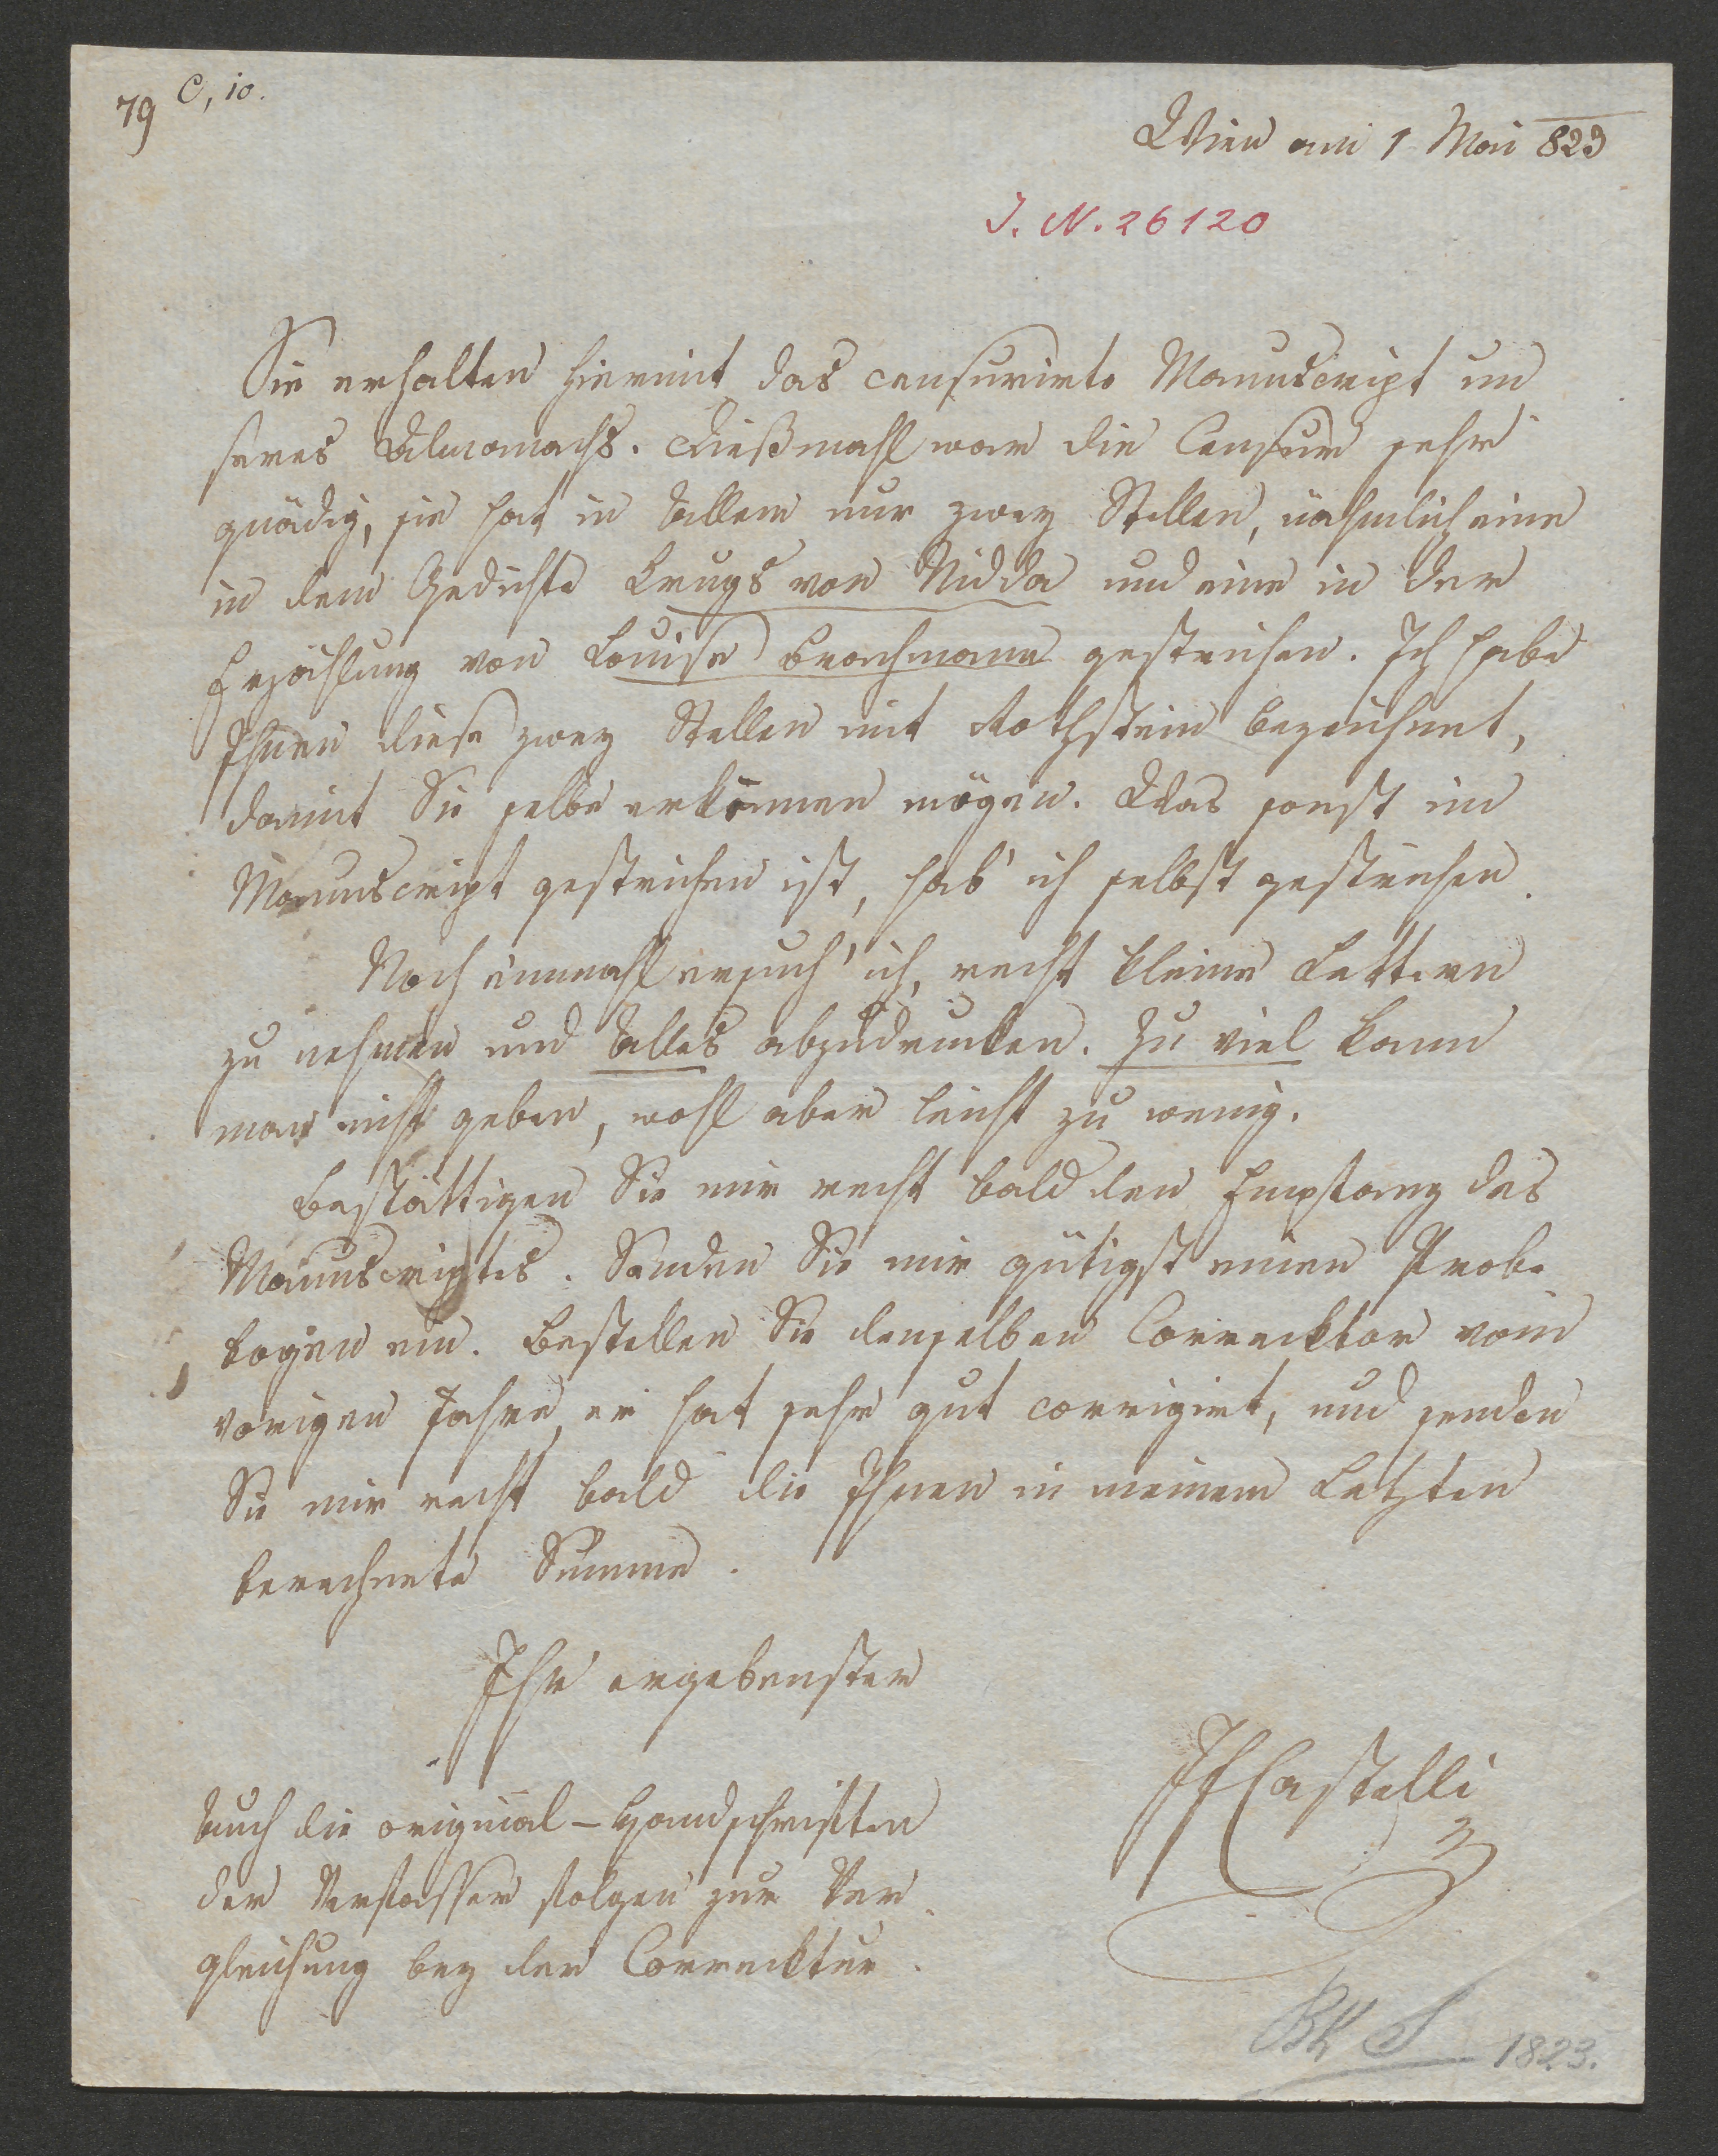 79 C, 10.
Wien am 1 Mai 823
I. N. 26120
Sie erhalten hiermit das censurirte Manuscript un
seres Almanachs. Dießmahl war die Censur sehr
gnädig, sie hat in Allem nur zwey Stellen, nähmlich eine
in dem Gedichte Krugs von Nidda und eine in der
Erzählung von Louise Brachmann gestrichen. Ich habe
Ihnen diese zwey Stellen mit Rothstein bezeichnet,
damit Sie selbe erkennen mögen. Was sonst im
Manuscript gestrichen ist, hab' ich selbst gestrichen.
Noch einmahl ersuch' ich, recht kleine Lettern
zu nehmen und Alles abzudrucken. Zu viel kann
man nicht geben, wohl aber leicht zu wenig.
Bestättigen Sie mir recht bald den Empfang des
Manuscriptes. Senden Sie mir gütigst einen Probe
bogen ein. Bestellen Sie denselben Correcktor vom
vorigen Jahre, er hat sehr gut corrigirt, und senden
Sie mir recht bald die Ihnen in meinem Letzten
berechnete Summe.
Ihr ergebenster
IFCastelli
Auch die original-Handschriften
der Verfasser folgen zur Ver
gleichung bey der Correcktur.
1823.